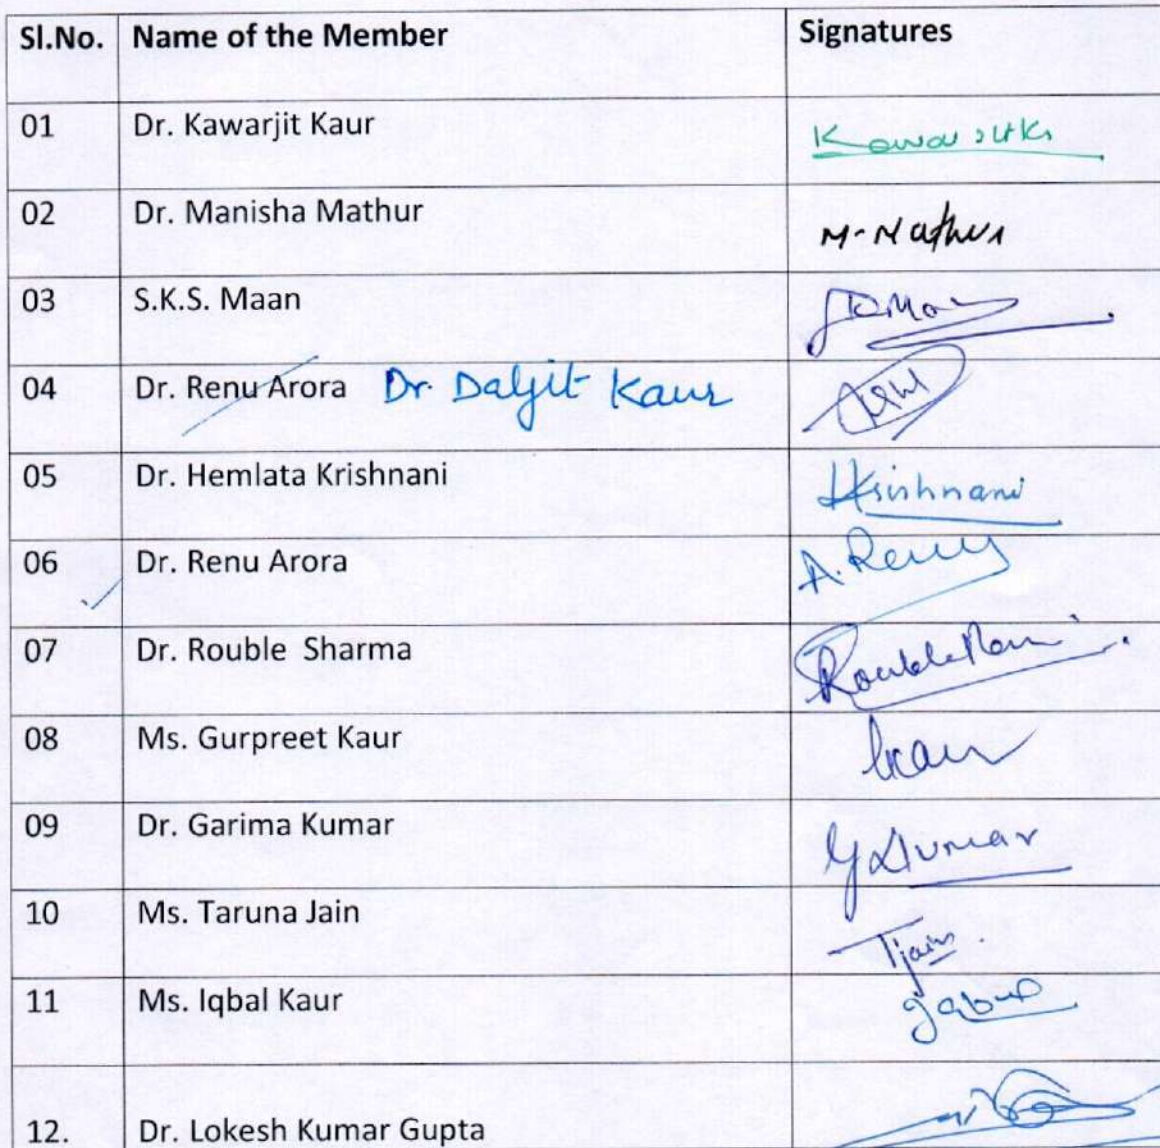 Sl.No. Name of the Member Signatures
01 Dr. Kawarjit Kaur
02 Dr. Manisha Mathur M. Mathur
03 S.K.S. Maan
04 Dr. Renu Arora Dr. Daljit Kaur
05 Dr. Hemlata Krishnani HKrishnani
06 Dr. Renu Arora A. Renu
07 Dr. Rouble Sharma
08 Ms. Gurpreet Kaur Kaur
09 Dr. Garima Kumar GKumar
10 Ms. Taruna Jain TJain
11 Ms. Iqbal Kaur
12. Dr. Lokesh Kumar Gupta